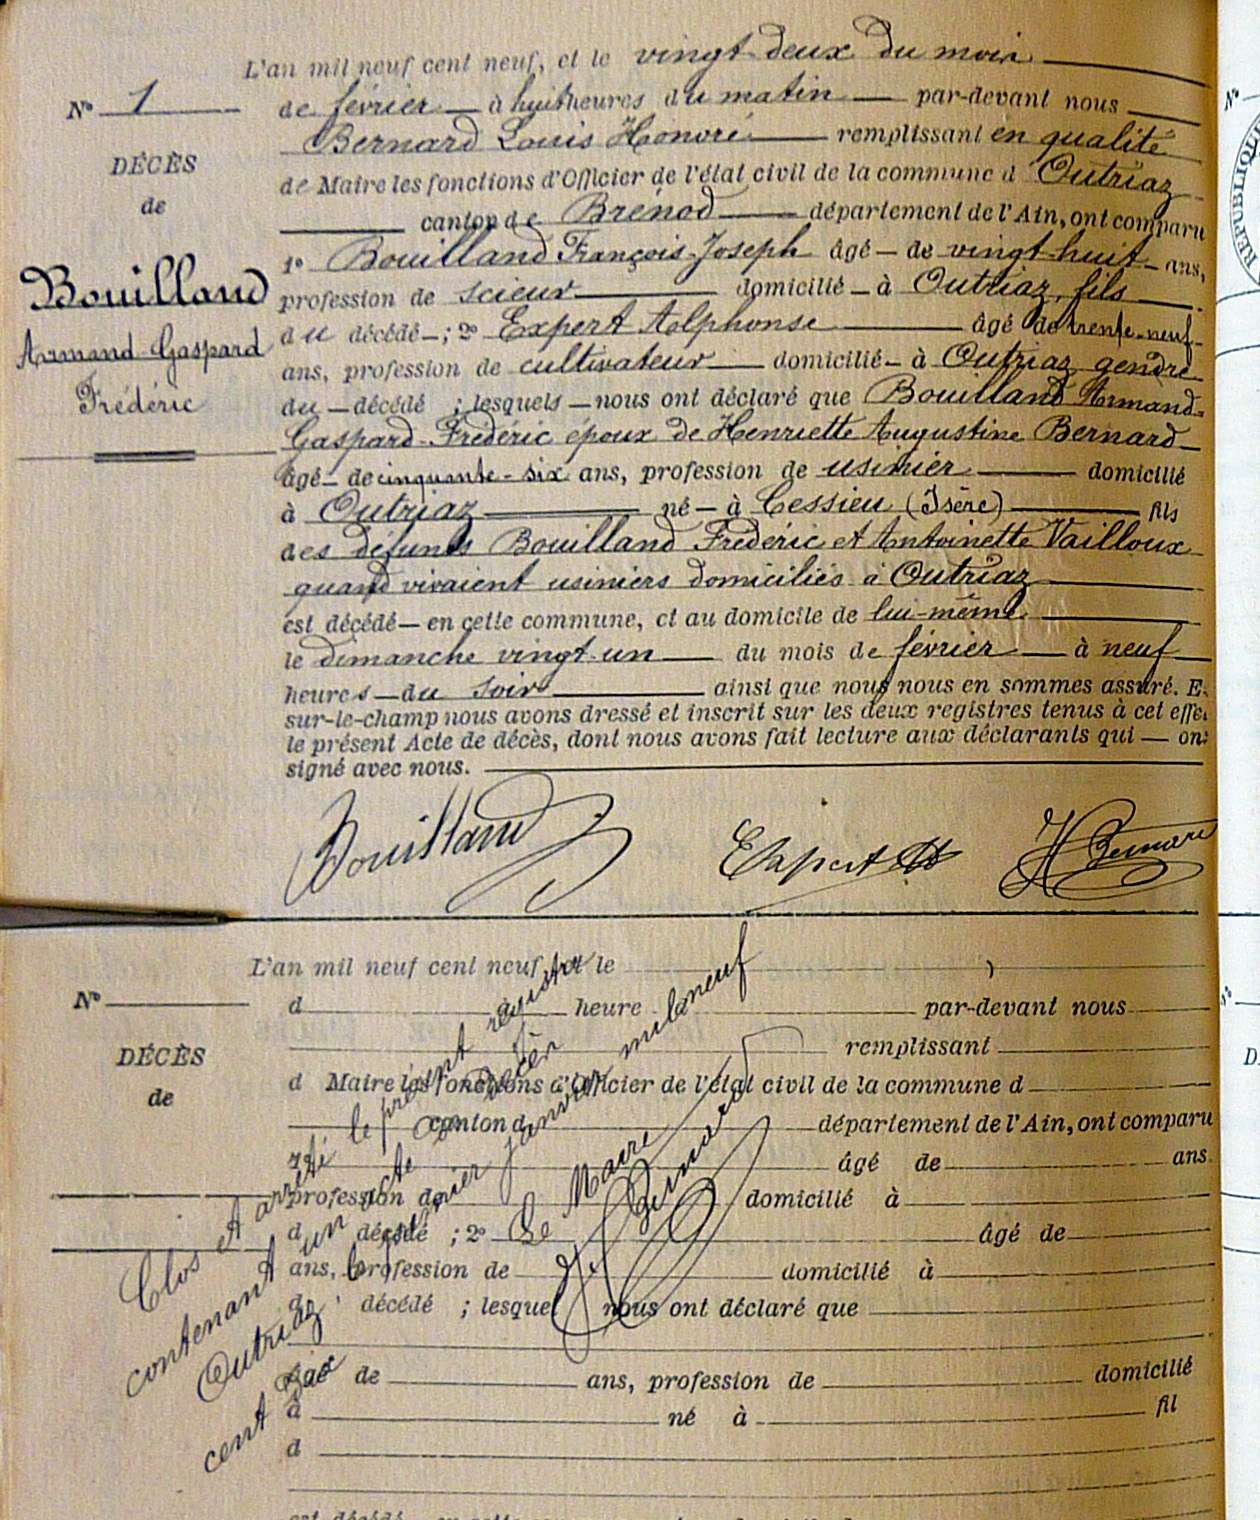 L'an mil neuf cent neuf, et le vingt-deux du mois
N° 1
de février à huit heures du matin par-devant nous
Bernard Louis Honoré remplissant en qualité
DÉCÈS
de Maire les fonctions d'Officier de l'état civil de la commune d Outriaz
de
canton de Brénod département de l'Ain, ont comparu
1° Bouilland François-Joseph âgé de vingt-huit ans,
Bouilland
profession de scieur domicilié à Outriaz, fils
Armand Gaspard
du décédé ; 2° Expert Alphonse âgé de trente-neuf
ans, profession de cultivateur domicilié à Outriaz gendre
Frédéric
du décédé ; lesquels nous ont déclaré que Bouilland Armand-
Gaspard-Frédéric époux de Henriette Augustine Bernard
âgé de cinquante-six ans, profession de usinier domicilié
à Outriaz né à Cessieu (Isère) fils
des défunts Bouilland Frédéric et Antoinette Vailloux
quand vivaient usiniers domiciliés à Outriaz
est décédé en cette commune, et au domicile de lui-même
le dimanche vingt-un du mois de février à neuf
heures du soir ainsi que nous nous en sommes assuré. E
sur-le-champ nous avons dressé et inscrit sur les deux registres tenus à cet effe
le présent Acte de décès, dont nous avons fait lecture aux déclarants qui ont
signé avec nous.
Bouilland Expert A H Bernard
L'an mil neuf cent neuf, et le
N°
d à heure par-devant nous
remplissant
DÉCÈS
d Maire les fonctions d'Officier de l'état civil de la commune d
de
canton d département de l'Ain, ont comparu
1° âgé de ans
profession de domicilié à
d décédé ; 2° âgé de
ans, profession de domicilié à
d décédé ; lesquel nous ont déclaré que
âgé de ans, profession de domicilié
à né à fil
d
Clos et arrêté le présent registre
contenant un acte de décès
Outriaz le premier janvier mil neuf
cent dix
Le Maire
H Bernard
REPUBLIQUE